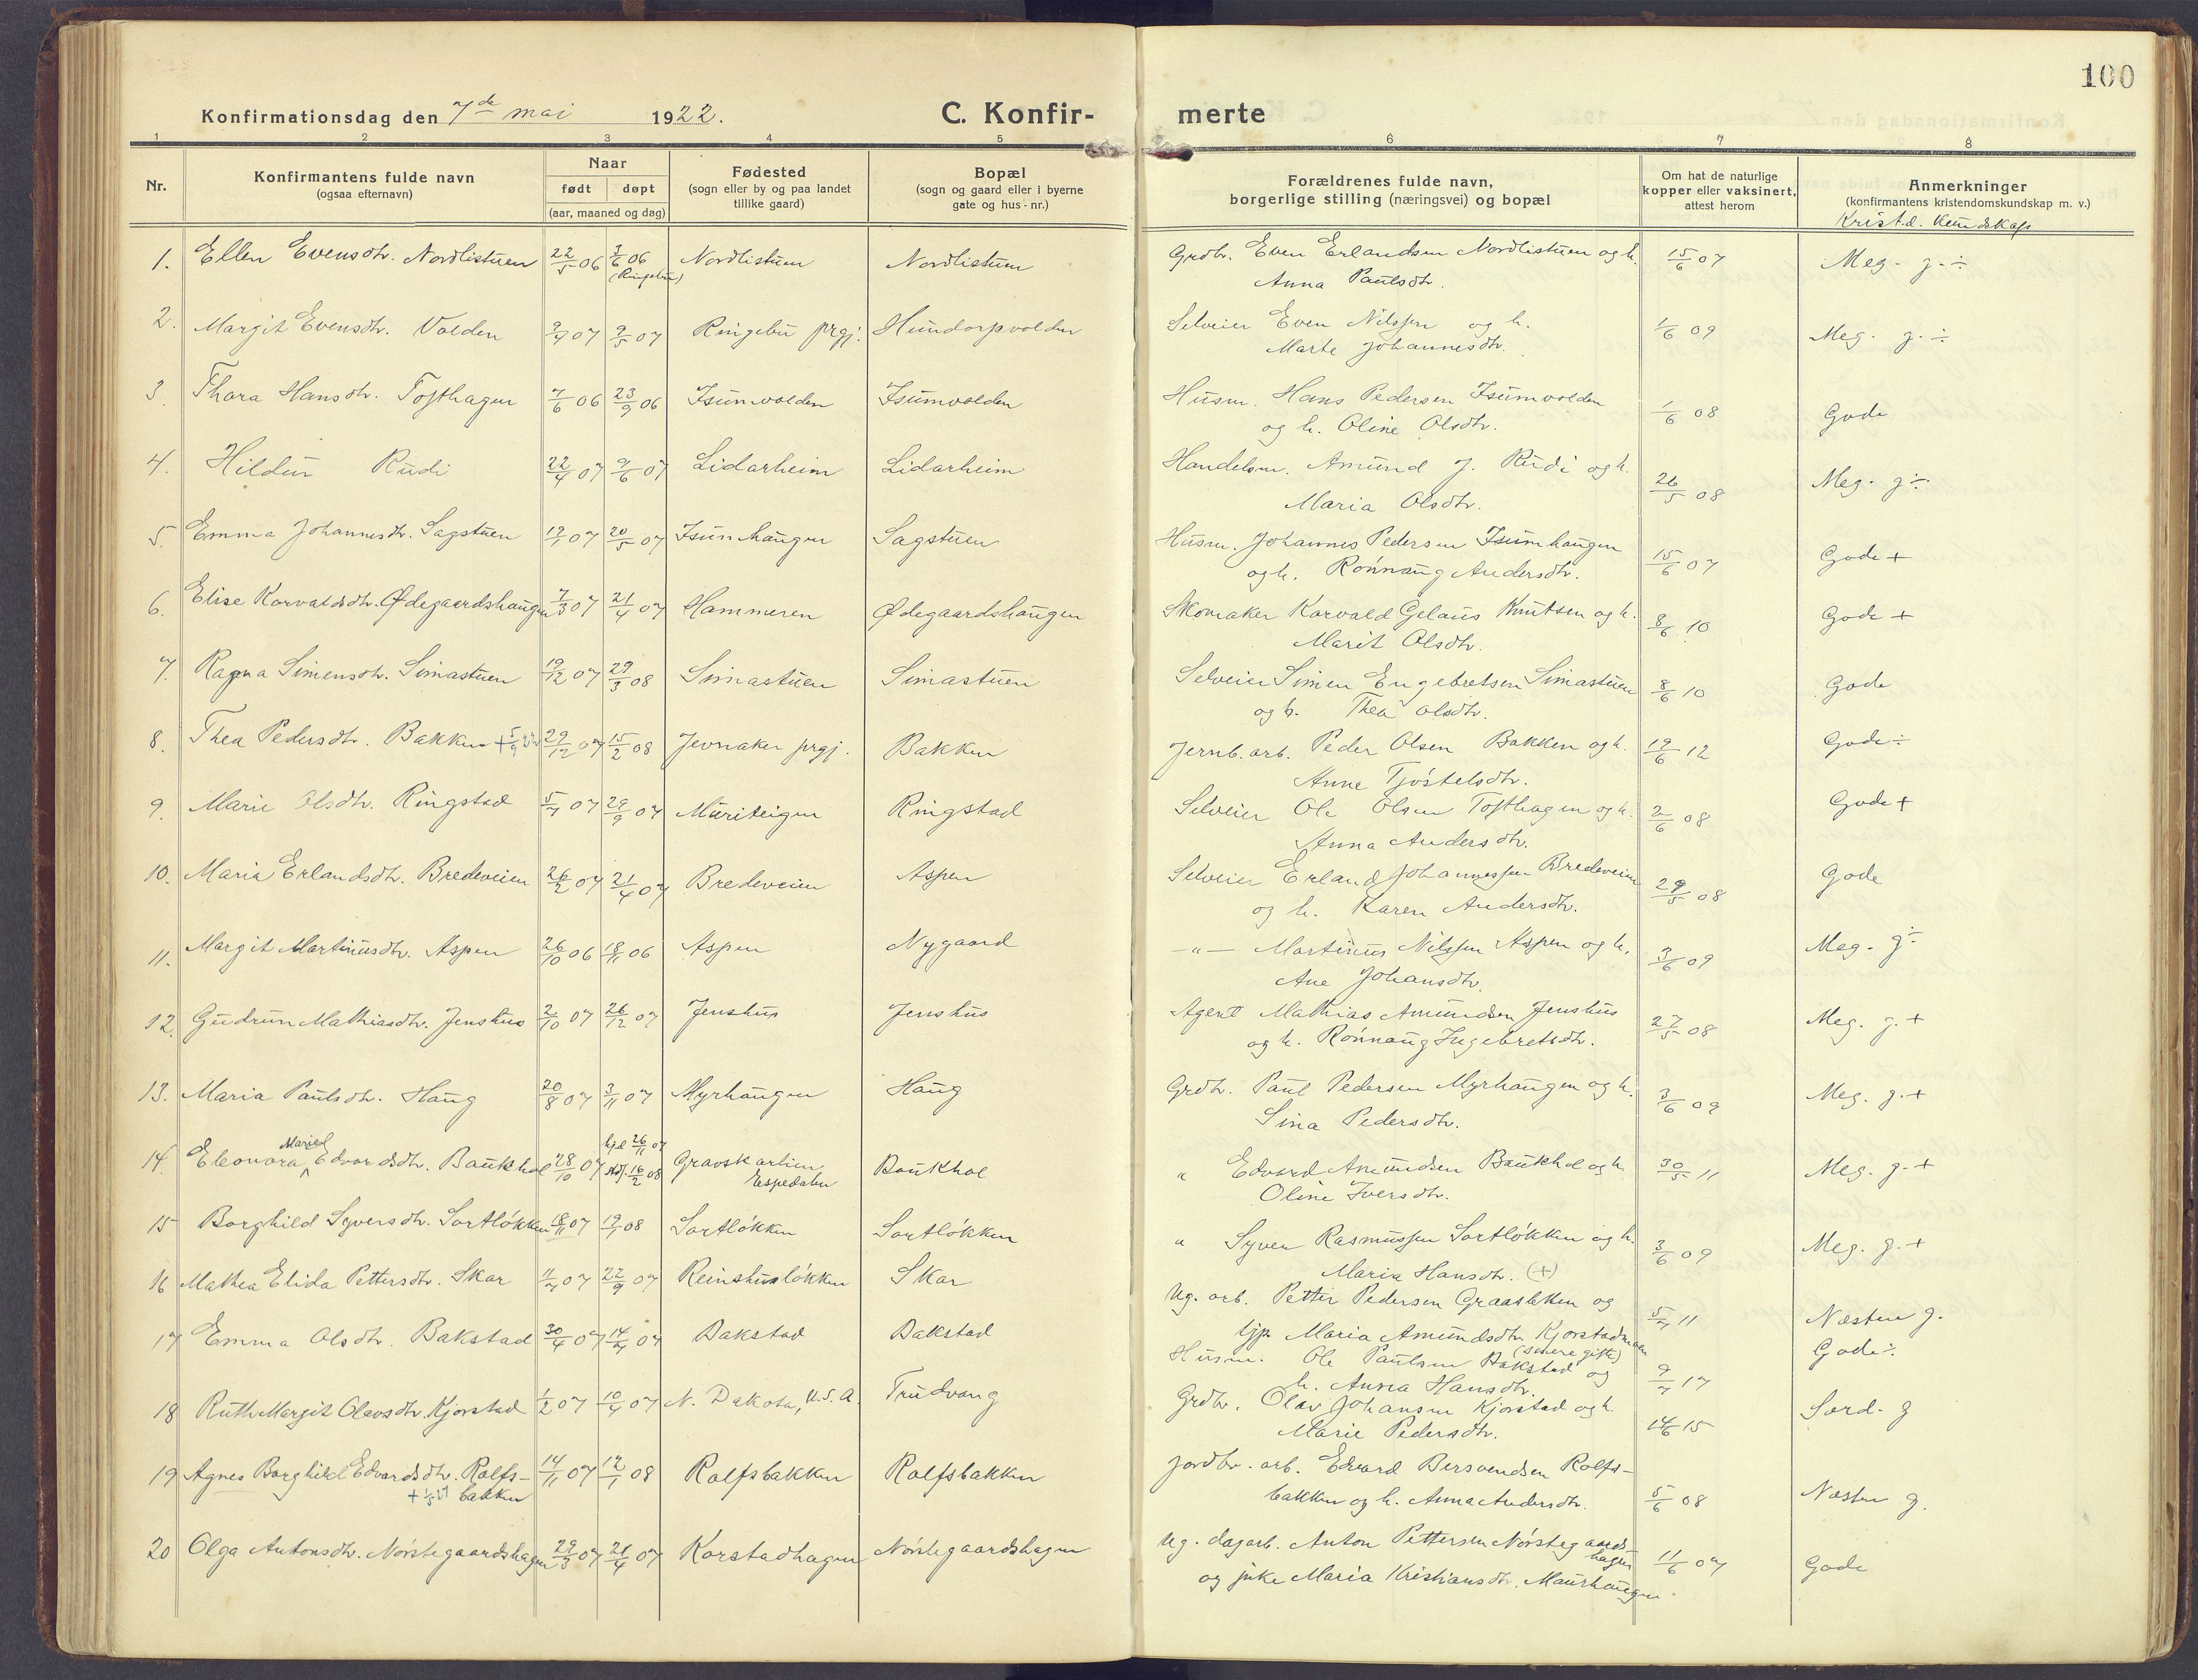 100
Konfirmationsdag den 7de mai 1922.
C. Konfir-
merte
1 2 3 4 5 6 7 8
Nr.
Konfirmantens fulde navn
(ogsaa efternavn)
Naar
født døpt
(aar, maaned og dag)
Fødested
(sogn eller by og paa landet
tillike gaard)
Bopæl
(sogn og gaard eller i byerne
gate og hus-nr.)
Forældrenes fulde navn,
borgerlige stilling (næringsvei) og bopæl
Om hat de naturlige
kopper eller vaksinert,
attest herom
Anmerkninger
(konfirmantens kristendomskundskap m. v.)
Kristd. Kundskap
1. Ellen Evensdtr. Nordlistuen 22/5 06 3/6 06 Nordlistuen Nordlistuen Grdbr. Even Erlandsen Nordlistuen og h. 15/6 07 Meg. g. ÷
(Ringebu) Anna Paulsdtr.
2. Margit Evensdtr. Volden 9/4 07 9/5 07 Ringebu prgj. Hundorpvolden Selveier Even Nilssen og h. 1/6 09 Meg. g. ÷
Marte Johannesdtr.
3. Thora Hansdtr. Tofthagen 7/6 06 23/9 06 Isumvolden Isumvolden Husm. Hans Pedersen Isumvolden 1/6 08 Gode
og h. Oline Olsdtr.
4. Hildur Rudi 22/4 07 9/6 07 Lidarheim Lidarheim Handelsm. Amund J. Rudi og h. 26/5 08 Meg. g ÷
Maria Olsdtr.
5. Emma Johannesdtr. Sagstuen 12/1 07 20/5 07 Isumhaugen Sagstuen Husm. Johannes Pedersen Isumhaugen 15/6 07 Gode +
og h. Rønnaug Andersdtr.
6. Elise Korvaldsdtr. Ødegaardshaugen 7/3 07 21/4 07 Hammeren Ødegaardshaugen Skomaker Korvald Gelaus Knutsen og h. 8/6 10 Gode +
Marit Olsdtr.
7. Ragna Simensdtr. Simastuen 19/12 07 29/3 08 Simastuen Simastuen Selveier Simen Engebretsen Simastuen 8/6 10 Gode
og h. Thea Olsdtr.
8. Thea Pedersdtr. Bakken + 5/9 22 29/12 07 15/2 08 Jevnaker prgj. Bakken Jernb. arb. Peder Olsen Bakken og h. 19/6 12 Gode ÷
Anne Tjøstelsdtr.
9. Marie Olsdtr. Ringstad 5/7 07 29/9 07 Muriteigen Ringstad Selveier Ole Olsen Tofthagen og h. 2/6 08 Gode +
Anna Andersdtr.
10. Maria Erlandsdtr. Bredeveien 26/2 07 21/4 07 Bredeveien Aspen Selveier Erland Johannessen Bredeveien 29/5 08 Gode
og h. Karen Andersdtr.
11. Margit Martinusdtr. Aspen 26/10 06 18/11 06 Aspen Nygaard -"- Martinus Nilssen Aspen og h. 3/6 09 Meg. g ÷
Ane Johansdtr.
12. Gudrun Mathiasdtr. Jenshus 2/10 07 26/12 07 Jenshus Jenshus Agent Mathias Amundsen Jenshus 27/5 08 Meg. g. +
og h. Rønnaug Ingebretsdtr.
13. Maria Paulsdtr. Haug 20/8 07 3/11 07 Myrhaugen Haug Grdbr. Paul Pedersen Myrhaugen og h. 3/6 09 Meg. g. +
Sina Pedersdtr.
14. Eleonora Marie Edvardsdtr. Baukhol 28/10 07 hjd 26/11 07 Gravskarlien Baukhol " Edvard Amundsen Baukhol og h. 30/5 11 Meg. g. +
16/2 08 Espedalen Oline Iversdtr.
15 Borghild Syversdtr. Sortløkken 18/11 07 19/1 08 Sortløkken Sortløkken " Syver Rasmussen Sortløkken og h. 3/6 09 Meg. g. +
Maria Hansdtr. (+)
16 Mathea Elida Pettersdtr. Skar 11/7 07 22/9 07 Reinshusløkken Skar Ug. arb. Petter Pedersen Graasletten og 5/7 11 Næsten g.
tjp. Maria Amundsdtr. Kjorstadmoen
(senere gifte)
17 Emma Olsdtr. Bakstad 30/4 07 14/7 07 Bakstad Bakstad Husm. Ole Paulsen Bakstad og 9/7 17 Gode ÷
h. Anna Hansdtr.
18 Ruth Margit Olavsdtr. Kjorstad 1/2 07 10/4 07 N. Dakota, U.S.A. Trudvang Grdbr. Olav Johansen Kjorstad og h. 14/6 15 Særd. g
Marie Pedersdtr.
19 Agnes Borghild Edvardsdtr. Rolfs- 14/11 07 12/1 08 Rolfsbakken Rolfsbakken Jordbr. arb. Edvard Bersvendsen Rolfs- 5/6 08 Næsten g.
bakken bakken og h. Anna Andersdtr.
20 Olga Antonsdtr. Nørstegaardshagen 29/3 07 21/4 07 Korstadhagen Nørstegaardshagen Ug. dagarb. Anton Pettersen Nørstegaards- 11/6 07 Gode
hagen
og pike Maria Kristiansdtr. Maurhaugen.